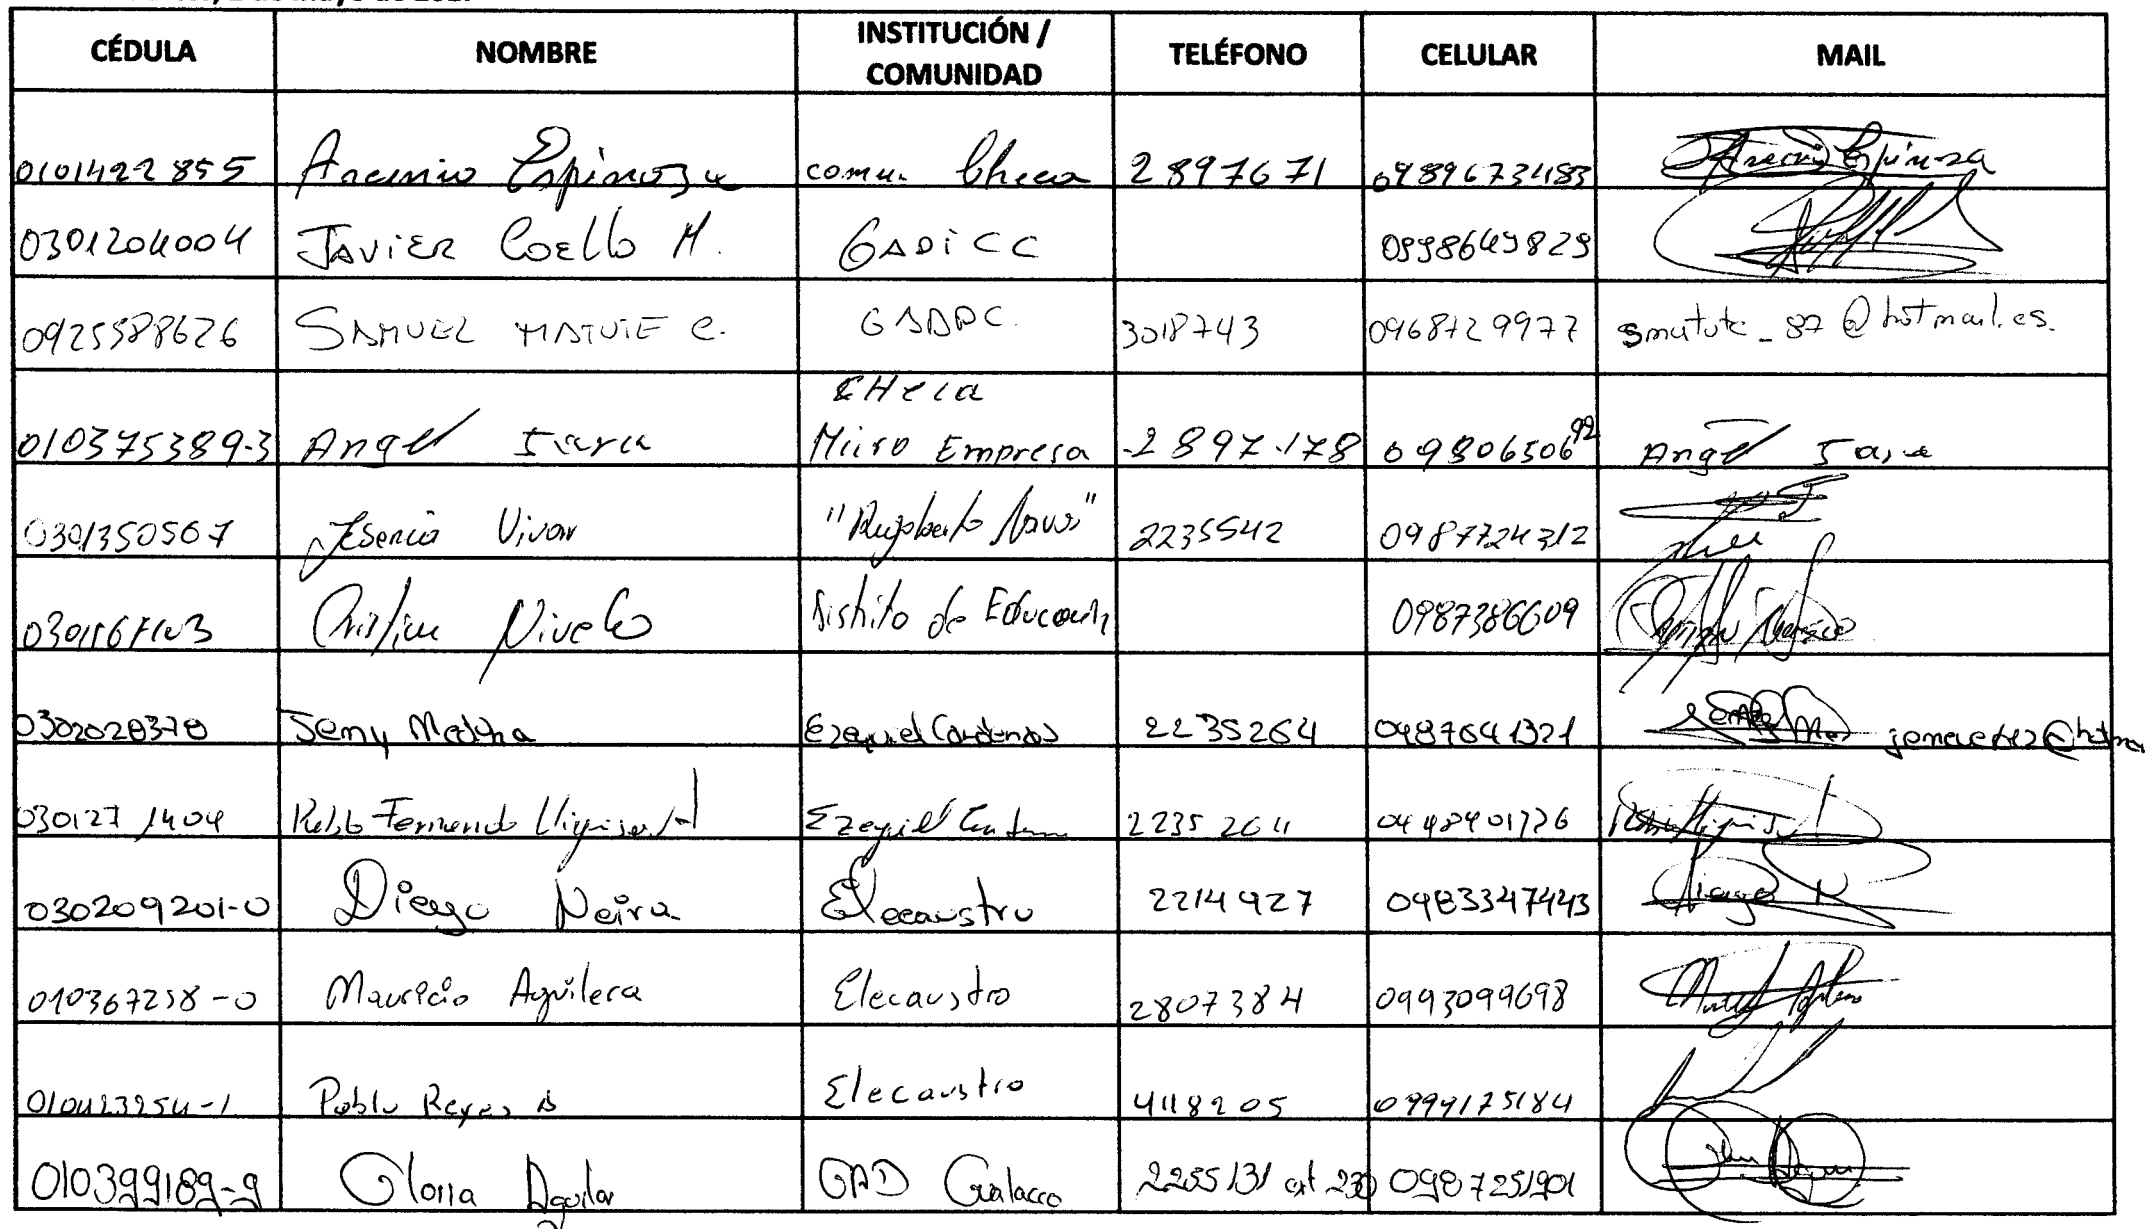 CÉDULA NOMBRE INSTITUCIÓN / COMUNIDAD TELÉFONO CELULAR MAIL
0101422855 Arcenio Espinoza comu. Checa 2897671 Arcenio Espinoza
0301204004 JAVIER COELLO M. GADICC 0998649829
0925588626 SAMUEL MATUTE C. GADPC. 3018743 0968729977 smatute_87@hotmail.es.
CHeca
010375389-3 Angel Micro Empresa 2897178 0980650692 Angel
0301350567 Jesenia Vivar 2235542 0987724312
Cristian Nivelo Distrito de Educación 0987386609
0302028378 Jeny Ezequiel Cardenas 2235264 0987641321
030127 1404 Pablo Fernando Ezequiel 2235264
030209201-0 Diego Neira Elecaustro 2214927 0983347443 Diego N
010367258-0 Mauricio Aguilera Elecaustro 2807384 0993099698
010423254-1 Pablo Reyes Elecaustro 4118205 0999175184
010399189-9 Gloria Aguilar GAD Gualaceo 2255131 ext 230 0987251901